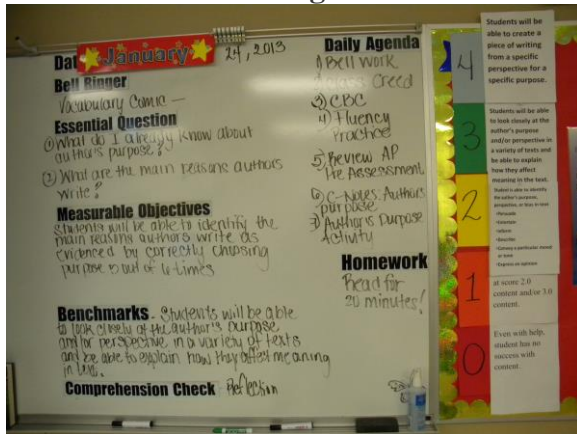 Date
January
24, 2013
Bell Ringer
Vocabulary Comic -
Essential Question
① What do I already know about
author's purpose?
② What are the main reasons authors
write?
Measurable Objectives
Students will be able to identify the
main reasons authors write as
evidenced by correctly choosing
purpose 5 out of 6 times
Benchmarks - Students will be able
to look closely at the author's purpose
and/or perspective in a variety of texts
and be able to explain how they affect meaning
in text.
Comprehension Check Reflection
Daily Agenda
1) Bell work
2) Class Creed
3) CBC
4) Fluency
Practice
5) Review AP
Pre Assessment
6) C-Notes: Authors
purpose
7) Author's Purpose
Activity
Homework
Read for
20 minutes!
4
Students will be
able to create a
piece of writing
from a specific
perspective for a
specific purpose.
3
Students will be able
to look closely at the
author's purpose
and/or perspective in
a variety of texts and
be able to explain
how they affect
meaning in the text.
2
Student is able to identify
the author's purpose,
perspective, or bias in text.
•Persuade
•Entertain
•Inform
•Describe
•Convey a particular mood
or tone
•Express an opinion
1
at score 2.0
content and/or 3.0
content.
0
Even with help,
student has no
success with
content.